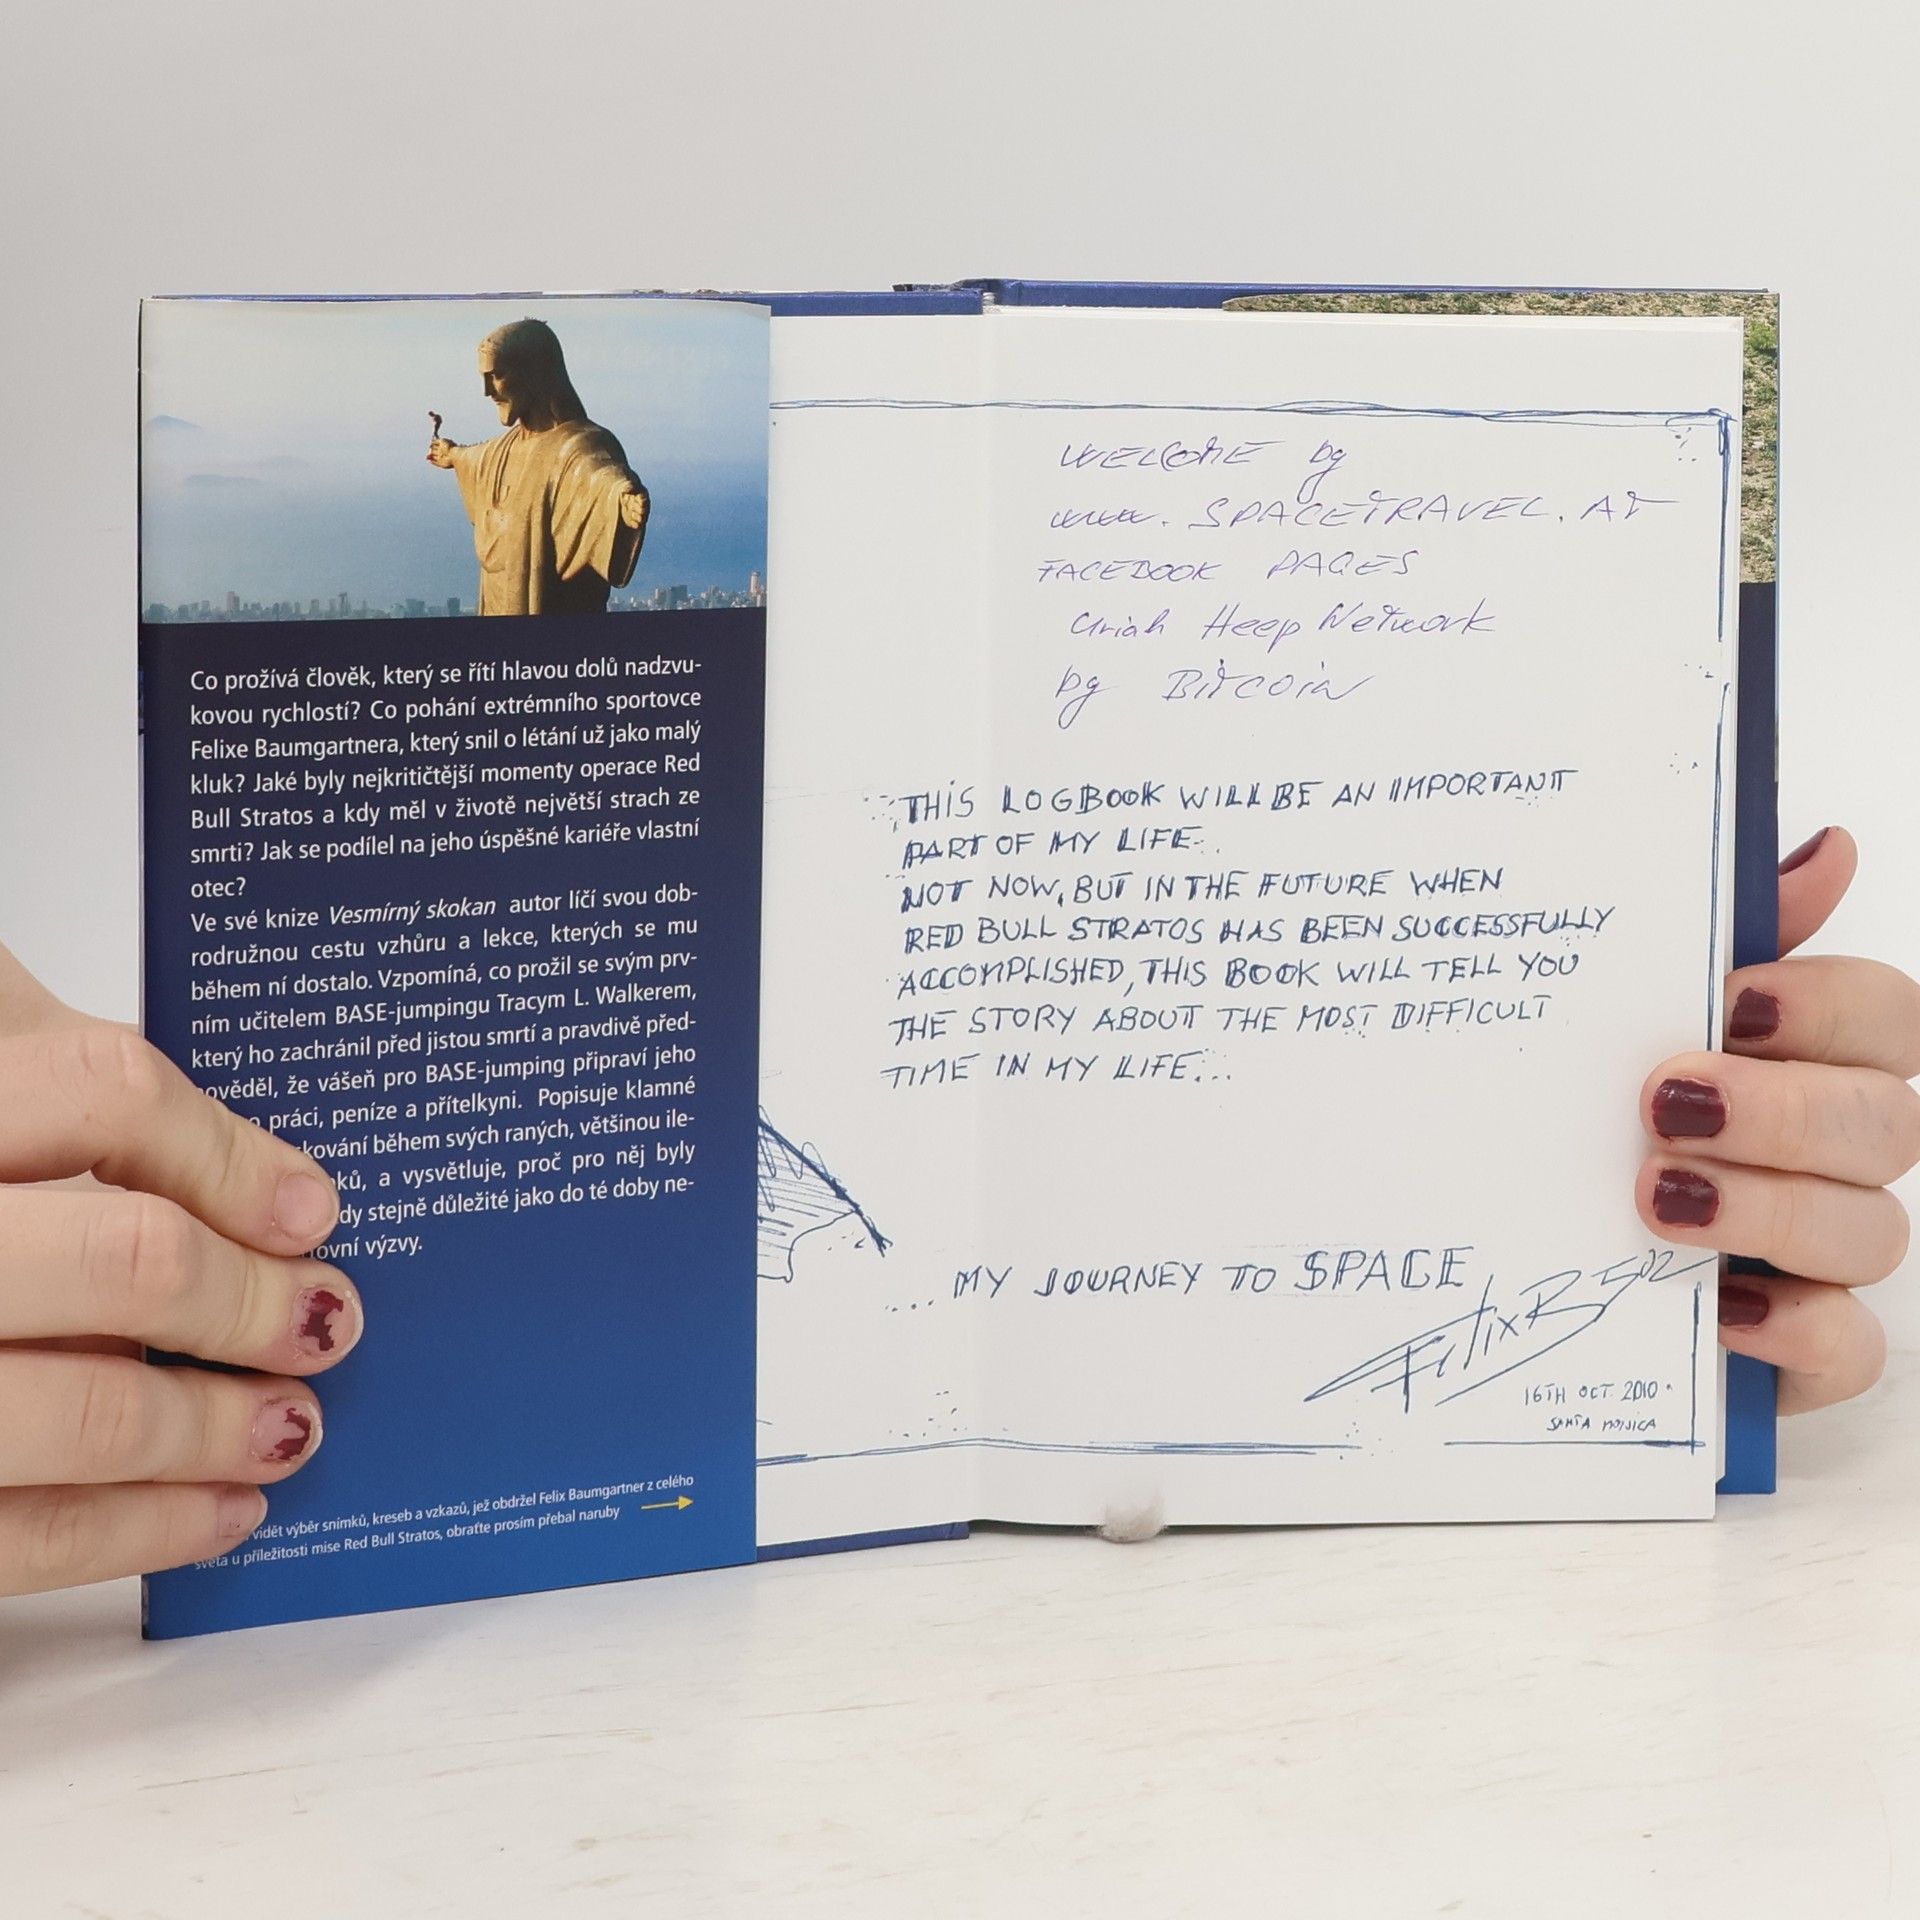 Co prožívá člověk, který se řítí hlavou dolů nadzvu-
kovou rychlostí? Co pohání extrémního sportovce
Felixe Baumgartnera, který snil o létání už jako malý
kluk? Jaké byly nejkritičtější momenty operace Red
Bull Stratos a kdy měl v životě největší strach ze
smrti? Jak se podílel na jeho úspěšné kariéře vlastní
otec?
Ve své knize Vesmírný skokan autor líčí svou dob-
rodružnou cestu vzhůru a lekce, kterých se mu
během ní dostalo. Vzpomíná, co prožil se svým prv-
ním učitelem BASE-jumpingu Tracym L. Walkerem,
který ho zachránil před jistou smrtí a pravdivě před-
pověděl, že vášeň pro BASE-jumping připraví jeho
práci, peníze a přítelkyni. Popisuje klamné
kování během svých raných, většinou ile-
ků, a vysvětluje, proč pro něj byly
dy stejně důležité jako do té doby ne-
rovní výzvy.
vidět výběr snímků, kreseb a vzkazů, jež obdržel Felix Baumgartner z celého
světa u příležitosti mise Red Bull Stratos, obraťte prosím přebal naruby
WELCOME by
www. SPACETRAVEL. AT
FACEBOOK PAGES
Uriah Heep Network
by BITCOIN
THIS LOGBOOK WILL BE AN IMPORTANT
PART OF MY LIFE..
NOT NOW, BUT IN THE FUTURE WHEN
RED BULL STRATOS HAS BEEN SUCCESSFULLY
ACCOMPLISHED, THIS BOOK WILL TELL YOU
THE STORY ABOUT THE MOST DIFFICULT
TIME IN MY LIFE...
.... MY JOURNEY TO SPACE
Felix B 502
16TH OCT. 2010
SANTA MONICA